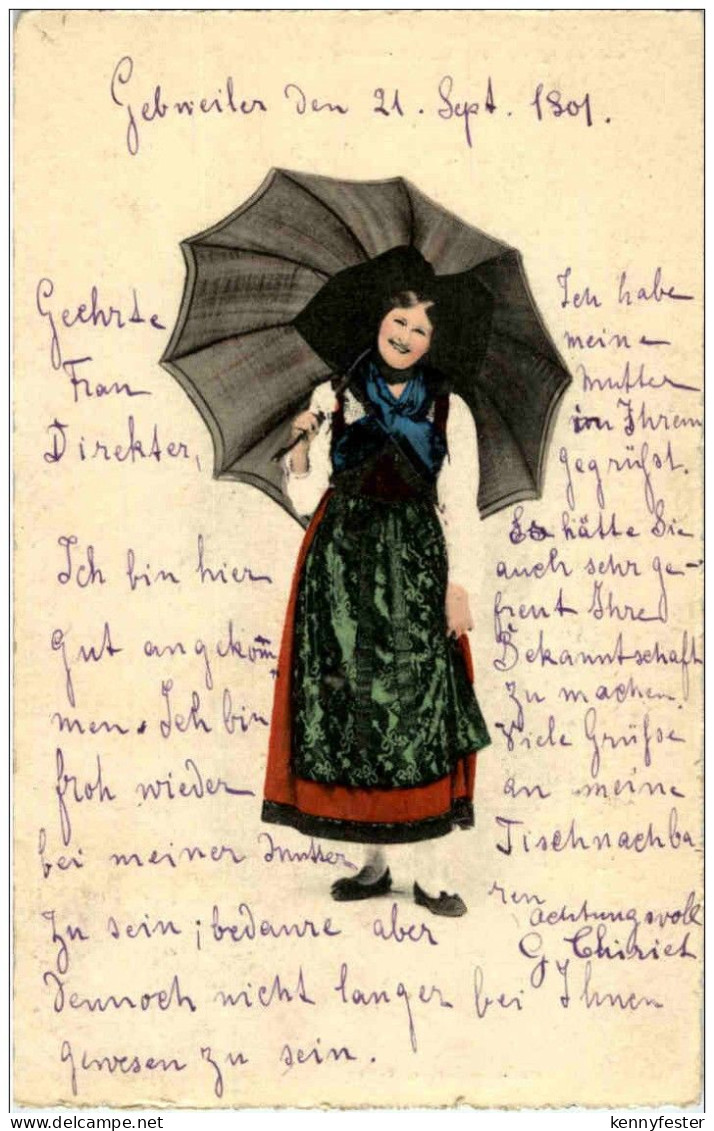 Gebweiler den 21. Sept. 1901.
Geehrte
Frau
Direkter,
Ich bin hier
gut angekom̅
men. Ich bin
froh wieder
bei meiner Mutter
zu sein; bedaure aber
dennoch nicht langer bei Ihnen
gewesen zu sein.
Ich habe
meine
Mutter
in Ihrem
gegrüßt.
Es hätte Sie
auch sehr ge-
freut Ihre
Bekanntschaft
zu machen.
Viele Grüße
an meine
Tischnachba-
ren
Achtungsvoll
G Chiriet
delcampe.net
kennyfester